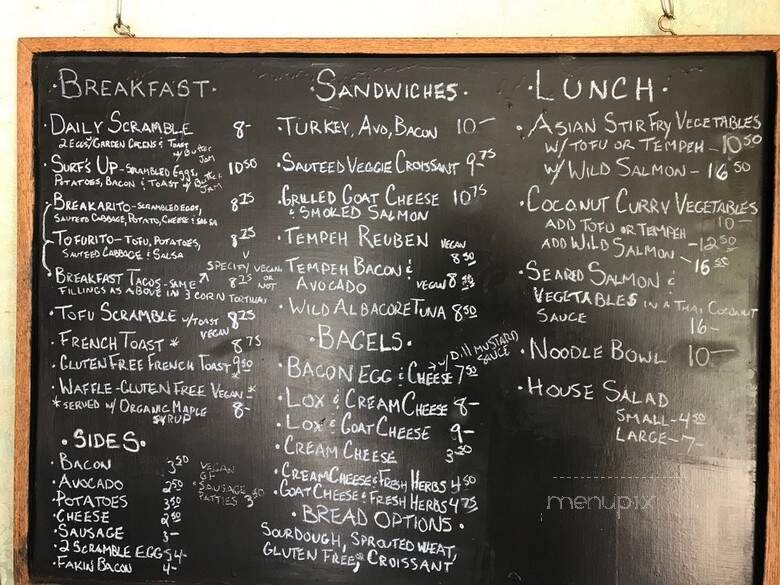 BREAKFAST·
·DAILY SCRAMBLE 8-
2 EGGS/GARDEN GREENS & TOAST w/ Butter JAM
·SURF'S UP-SCRAMBLED EGGS, 10 50
POTATOES, BACON & TOAST w/ Butter JAM
·BREAKARITO-SCRAMBLED EGGS, 8 25
SAUTEED CABBAGE, POTATO, CHEESE & SALSA
·TOFURITO-TOFU, POTATOES, 8 25
SAUTEED CABBAGE & SALSA
SPECIFY VEGAN OR NOT
·BREAKFAST TACOS-SAME 8 25
FILLINGS AS ABOVE IN 3 CORN TORTILLAS
·TOFU SCRAMBLE w/TOAST 8 25
VEGAN
·FRENCH TOAST * 8 75
·GLUTEN FREE FRENCH TOAST* 9 50
·WAFFLE-GLUTEN FREE VEGAN* 8-
*SERVED w/ ORGANIC MAPLE SYRUP
·SIDES·
·BACON 3 50
·AVOCADO 2 50
·POTATOES 3 50
·CHEESE 2 50
·SAUSAGE 3-
·2 SCRAMBLE EGGS 4-
·FAKIN BACON 4-
VEGAN
GF
·SAUSAGE
PATTIES 3 50
·SANDWICHES·
·TURKEY, AVO, BACON 10-
·SAUTEED VEGGIE CROISSANT 9-75
·GRILLED GOAT CHEESE 10 75
& SMOKED SALMON
·TEMPEH REUBEN VEGAN 8 50
·TEMPEH BACON &
AVOCADO VEGAN 8 50
·WILD ALBACORE TUNA 8 50
·BAGELS·
·BACON EGG & CHEESE 7 50 w/ Dill MUSTARD SAUCE
·LOX & CREAM CHEESE 8-
·LOX & GOAT CHEESE 9-
·CREAM CHEESE 3-50
·CREAM CHEESE & FRESH HERBS 4 50
·GOAT CHEESE & FRESH HERBS 4 75
·BREAD OPTIONS·
SOURDOUGH, SPROUTED WHEAT,
GLUTEN FREE, CROISSANT
·LUNCH·
·ASIAN STIR FRY VEGETABLES
W/ TOFU OR TEMPEH-10 50
W/ WILD SALMON-16 50
·COCONUT CURRY VEGETABLES
10-
ADD TOFU OR TEMPEH -12 50
ADD WILD SALMON - 16 50
·SEARED SALMON &
VEGETABLES IN A THAI COCONUT
SAUCE 16-
·NOODLE BOWL 10-
·HOUSE SALAD
SMALL-4 50
LARGE-7-
menupix